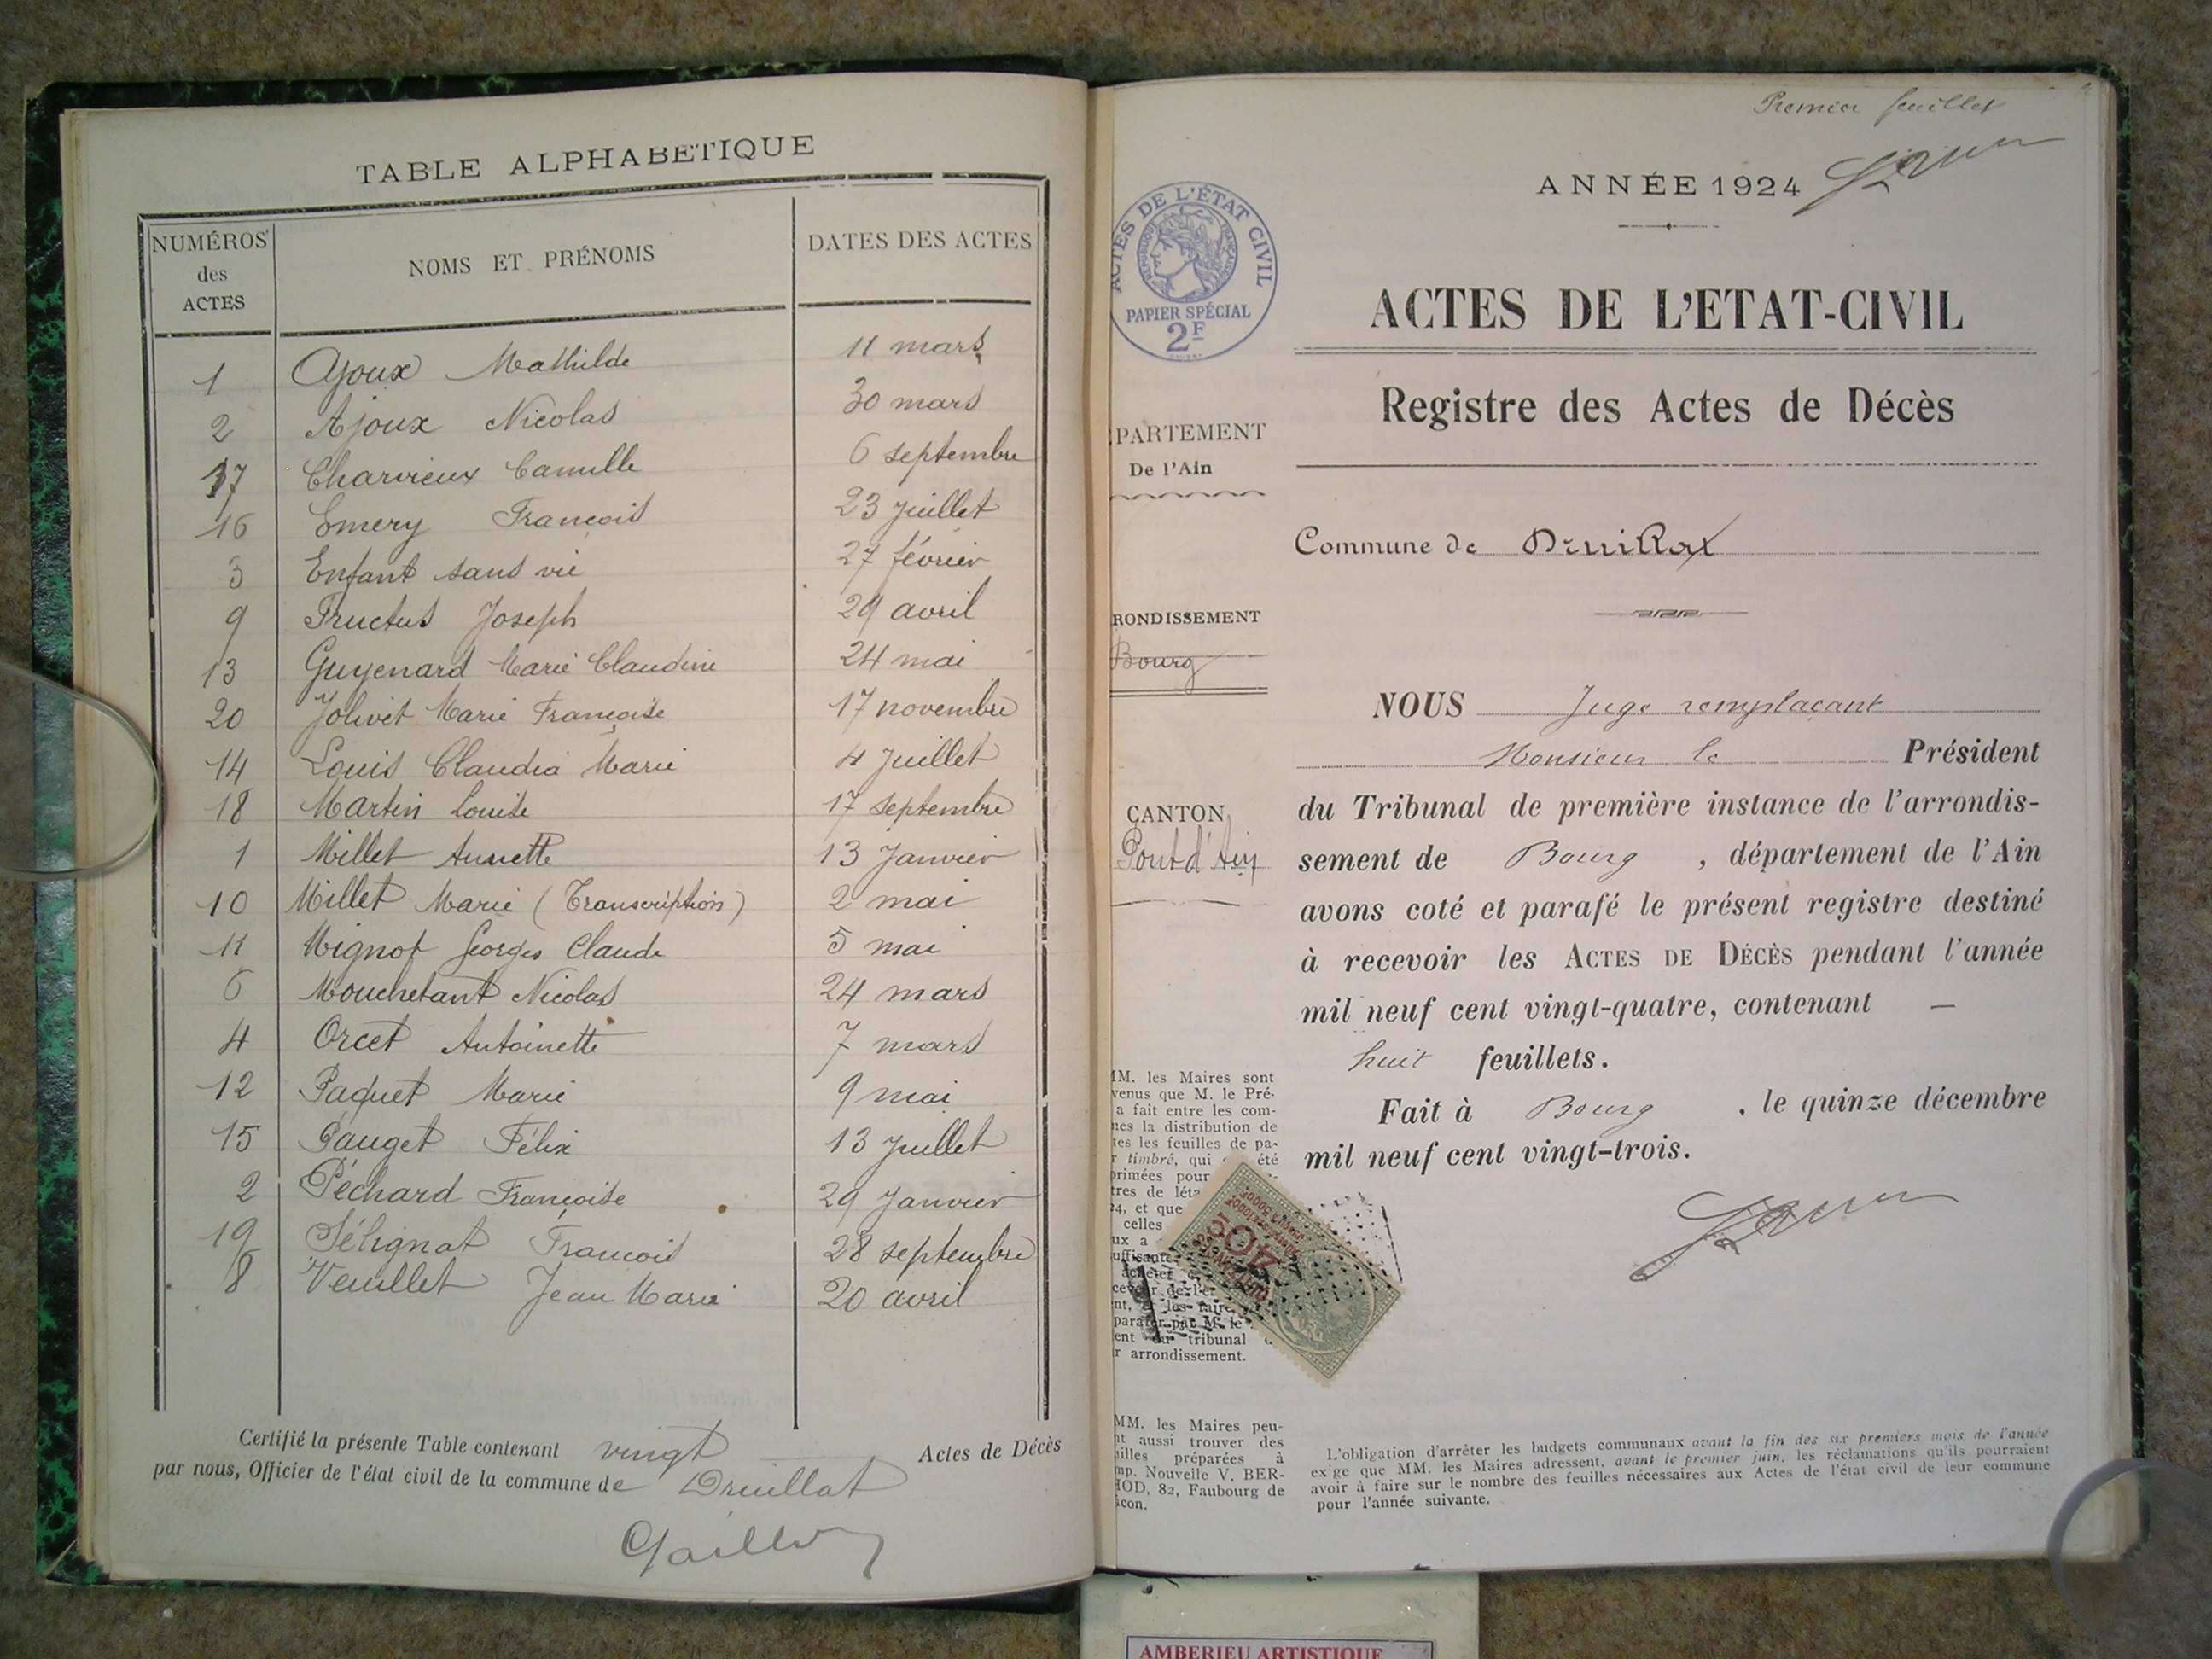 TABLE ALPHABETIQUE
NUMÉROS des ACTES NOMS ET PRÉNOMS DATES DES ACTES
1 Ajoux Mathilde 11 mars
2 Ajoux Nicolas 30 mars
17 Charvieux Camille 6 septembre
16 Emery François 23 juillet
3 Enfant sans vie 27 février
9 Fructus Joseph 29 avril
13 Guyenard Marie Claudine 24 mai
20 Jolivet Marie Françoise 17 novembre
14 Louis Claudia Marie 4 Juillet
18 Martin Louise 17 septembre
1 Millet Annette 13 Janvier
10 Millet Marie (Transcription) 2 mai
11 Mignot Georges Claude 5 mai
6 Mouchetant Nicolas 24 mars
4 Orcet Antoinette 7 mars
12 Paquet Marie 9 mai
15 Pauget Félix 13 Juillet
2 Péchard Françoise 29 Janvier
19 Sélignat Francois 28 septembre
8 Veuillet Jean Marie 20 avril
Certifié la présente Table contenant vingt Actes de Décès
par nous, Officier de l'état civil de la commune de Druillat
Premier feuillet
ANNÉE 1924
ACTES DE L'ÉTAT CIVIL
RÉPUBLIQUE FRANÇAISE
PAPIER SPÉCIAL
2F
ACTES DE L'ETAT-CIVIL
Registre des Actes de Décès
PARTEMENT
De l'Ain
Commune de Druillat
RONDISSEMENT
Bourg
CANTON
Pont d'Ain
NOUS Juge remplaçant
Monsieur le Président
du Tribunal de première instance de l'arrondis-
sement de Bourg, département de l'Ain
avons coté et parafé le présent registre destiné
à recevoir les ACTES DE DÉCÈS pendant l'année
mil neuf cent vingt-quatre, contenant —
huit feuillets.
Fait à Bourg, le quinze décembre
mil neuf cent vingt-trois.
MM. les Maires sont
venus que M. le Pré-
a fait entre les com-
nes la distribution de
tes les feuilles de pa-
r timbré, qui été
primées pour
tres de léta
4, et que
celles
ux a
uffisante
acheter
nt, les faire
parafer par M. le
ent du tribunal
r arrondissement.
40c
MM. les Maires peu-
nt aussi trouver des
uilles préparées à
mp. Nouvelle V. BER-
HOD, 82, Faubourg de
âcon.
L'obligation d'arrêter les budgets communaux avant la fin des six premiers mois de l'année
exige que MM. les Maires adressent, avant le premier juin, les réclamations qu'ils pourraient
avoir à faire sur le nombre des feuilles nécessaires aux Actes de l'état civil de leur commune
pour l'année suivante.
AMBERIEU ARTISTIQUE